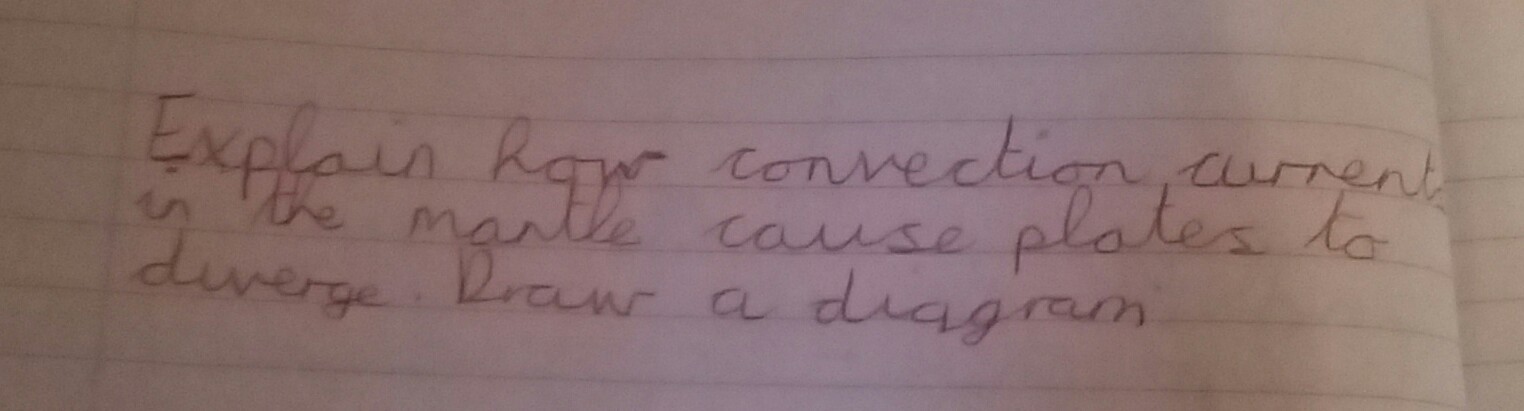 Explain how convection current
in the mantle cause plates to
diverge. Draw a diagram